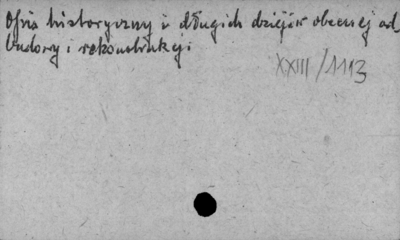 Opis historyczny i długich dziejów obecnej od
budowy i rekonstrukcji
XXIII/1113